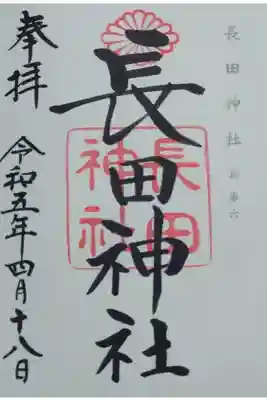 長田神社
長田神社
長田
神社
奉拝
令和五年四月十八日